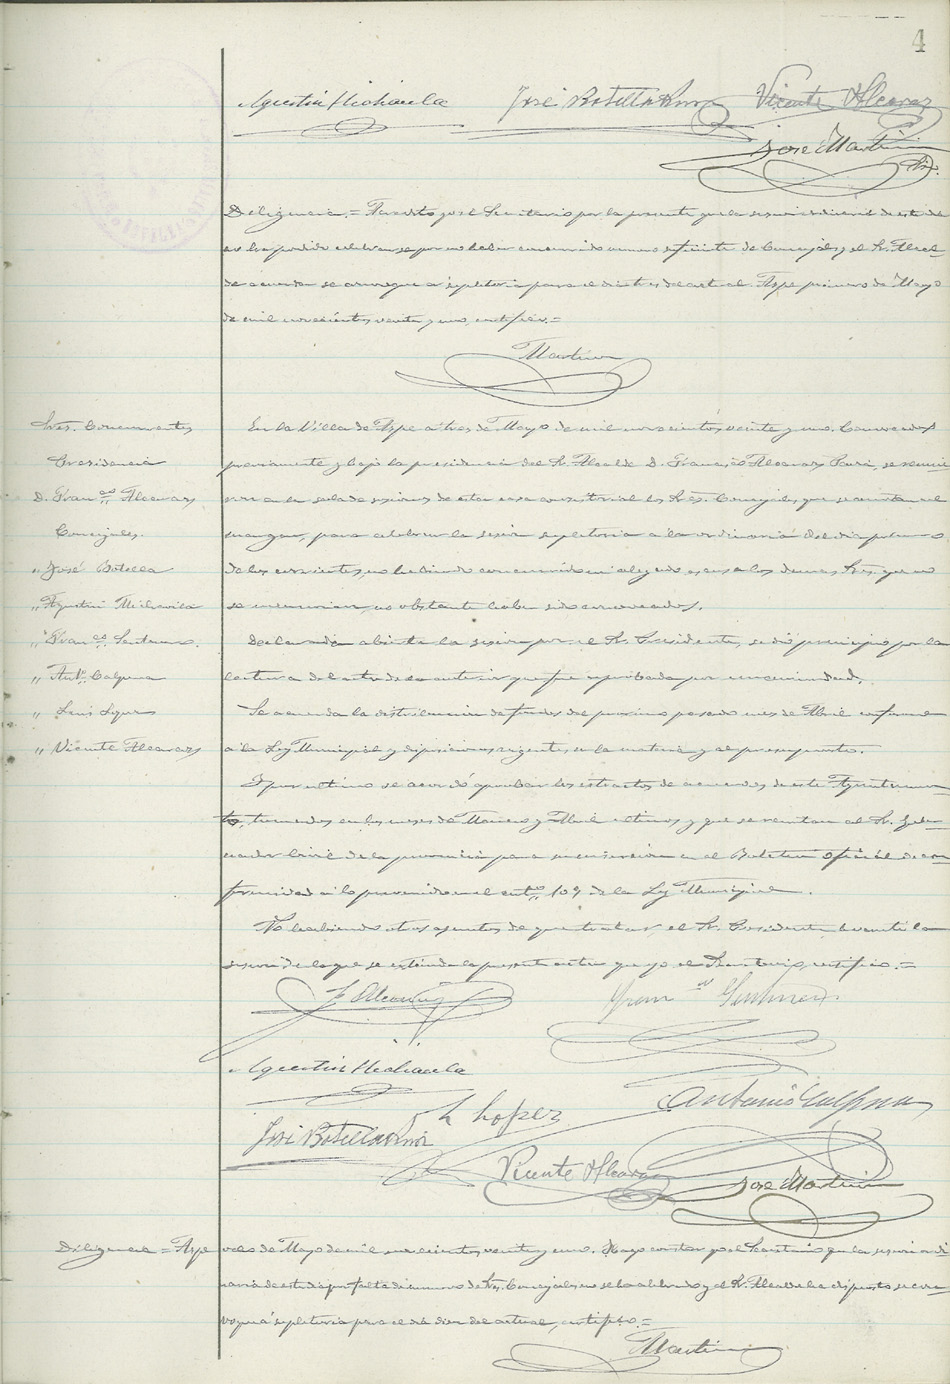 4
Agustin Michavila José Botella Vicente Alcaraz
José Martinez
Diligencia.= por el Secretario por la presente que la sesión ordinaria de este día
no ha podido celebrarse por no haber concurrido número suficiente de Concejales y el Sr. Alcal-
de acuerda se convoque a supletoria para el día tres del actual. Aspe primero de Mayo
de mil novecientos veinte y uno, certifico.=
Martinez
Sres. Concurrentes
Presidencia
D. Fran.co Alcaraz
Concejales.
" José Botella
" Agustin Michavila
" Fran.co Santiago
" Ant.o Calpena
" Luis Lopez
" Vicente Alcaraz
En la Villa de Aspe a tres de Mayo de mil novecientos veinte y uno. Convocados
previamente y bajo la presidencia del Sr. Alcalde D. Francisco Alcaraz se reunie-
ron en la sala de sesiones de esta casa consistorial los Sres. Concejales, que se anotan al
margen, para celebrar la sesión supletoria a la ordinaria del día primero
de los corrientes, no habiendo concurrido ni alegado excusa los demas Sres. que no
se mencionan, no obstante haber sido convocados.
Declarada abierta la sesión por el Sr. Presidente, se dió principio por la
lectura del acta de la anterior que fue aprobada por unanimidad.
Se acuerda la distribución de fondos del proximo pasado mes de Abril conforme
a la Ley Municipal y disposiciones vigentes en la materia y al presupuesto.
Y por ultimo se acordó aprobar los extractos de acuerdos de este Ayuntamien-
to, tomados en los meses de Marzo y Abril ultimos y que se remitan al Sr. Gober-
nador Civil de la provincia para su inserción en el Boletin oficial de con-
formidad a lo prevenido en el art.o 109 de la Ley Municipal.
No habiendo otros asuntos de que tratar, el Sr. Presidente levantó la
sesión de lo que se extiende la presente acta que yo el Secretario, certifico.=
F. Alcaraz
Agustin Michavila
L Lopez Antonio Calpena
José Botella
Vicente Alcaraz José Martinez
Diligencia = Aspe ocho de Mayo de mil novecientos veinte y uno. Hago constar yo el Secretario que la sesión ordi-
naria de este día por falta de número de Sres. Concejales no se ha celebrado y el Sr. Alcalde ha dispuesto se con-
voque a supletoria para el día diez del actual, certifico.=
Martinez